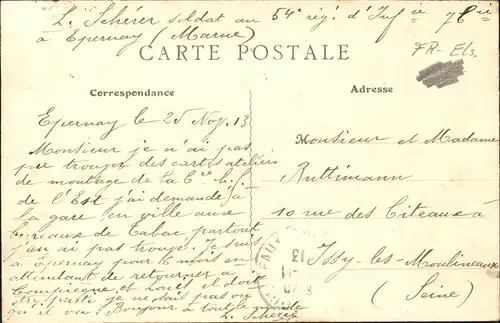 L. Schérer soldat au 54e rég. d'Infie 7e Cie
à Epernay (Marne)
CARTE POSTALE
FR- Els.
Correspondance
Adresse
Epernay le 25 Nov. 13
Monsieur je n'ai pas
pu trouver des cartes ateliers
de montage de la Cie
de l'Est j'ai demandé à
la gare en ville aux
bureaux de tabac partout
j'en ai pas trouvé. Je suis
à Epernay pour 6 mois en
attendant de retourner à
Compiègne et Louis il doit
être parti je ne sais pas où
qu il va. Bonjour à tout le monde
L. Schérer
Monsieur et Madame
Ruttimann
10 rue des Citeaux à
Issy-les-Moulineaux
(Seine)